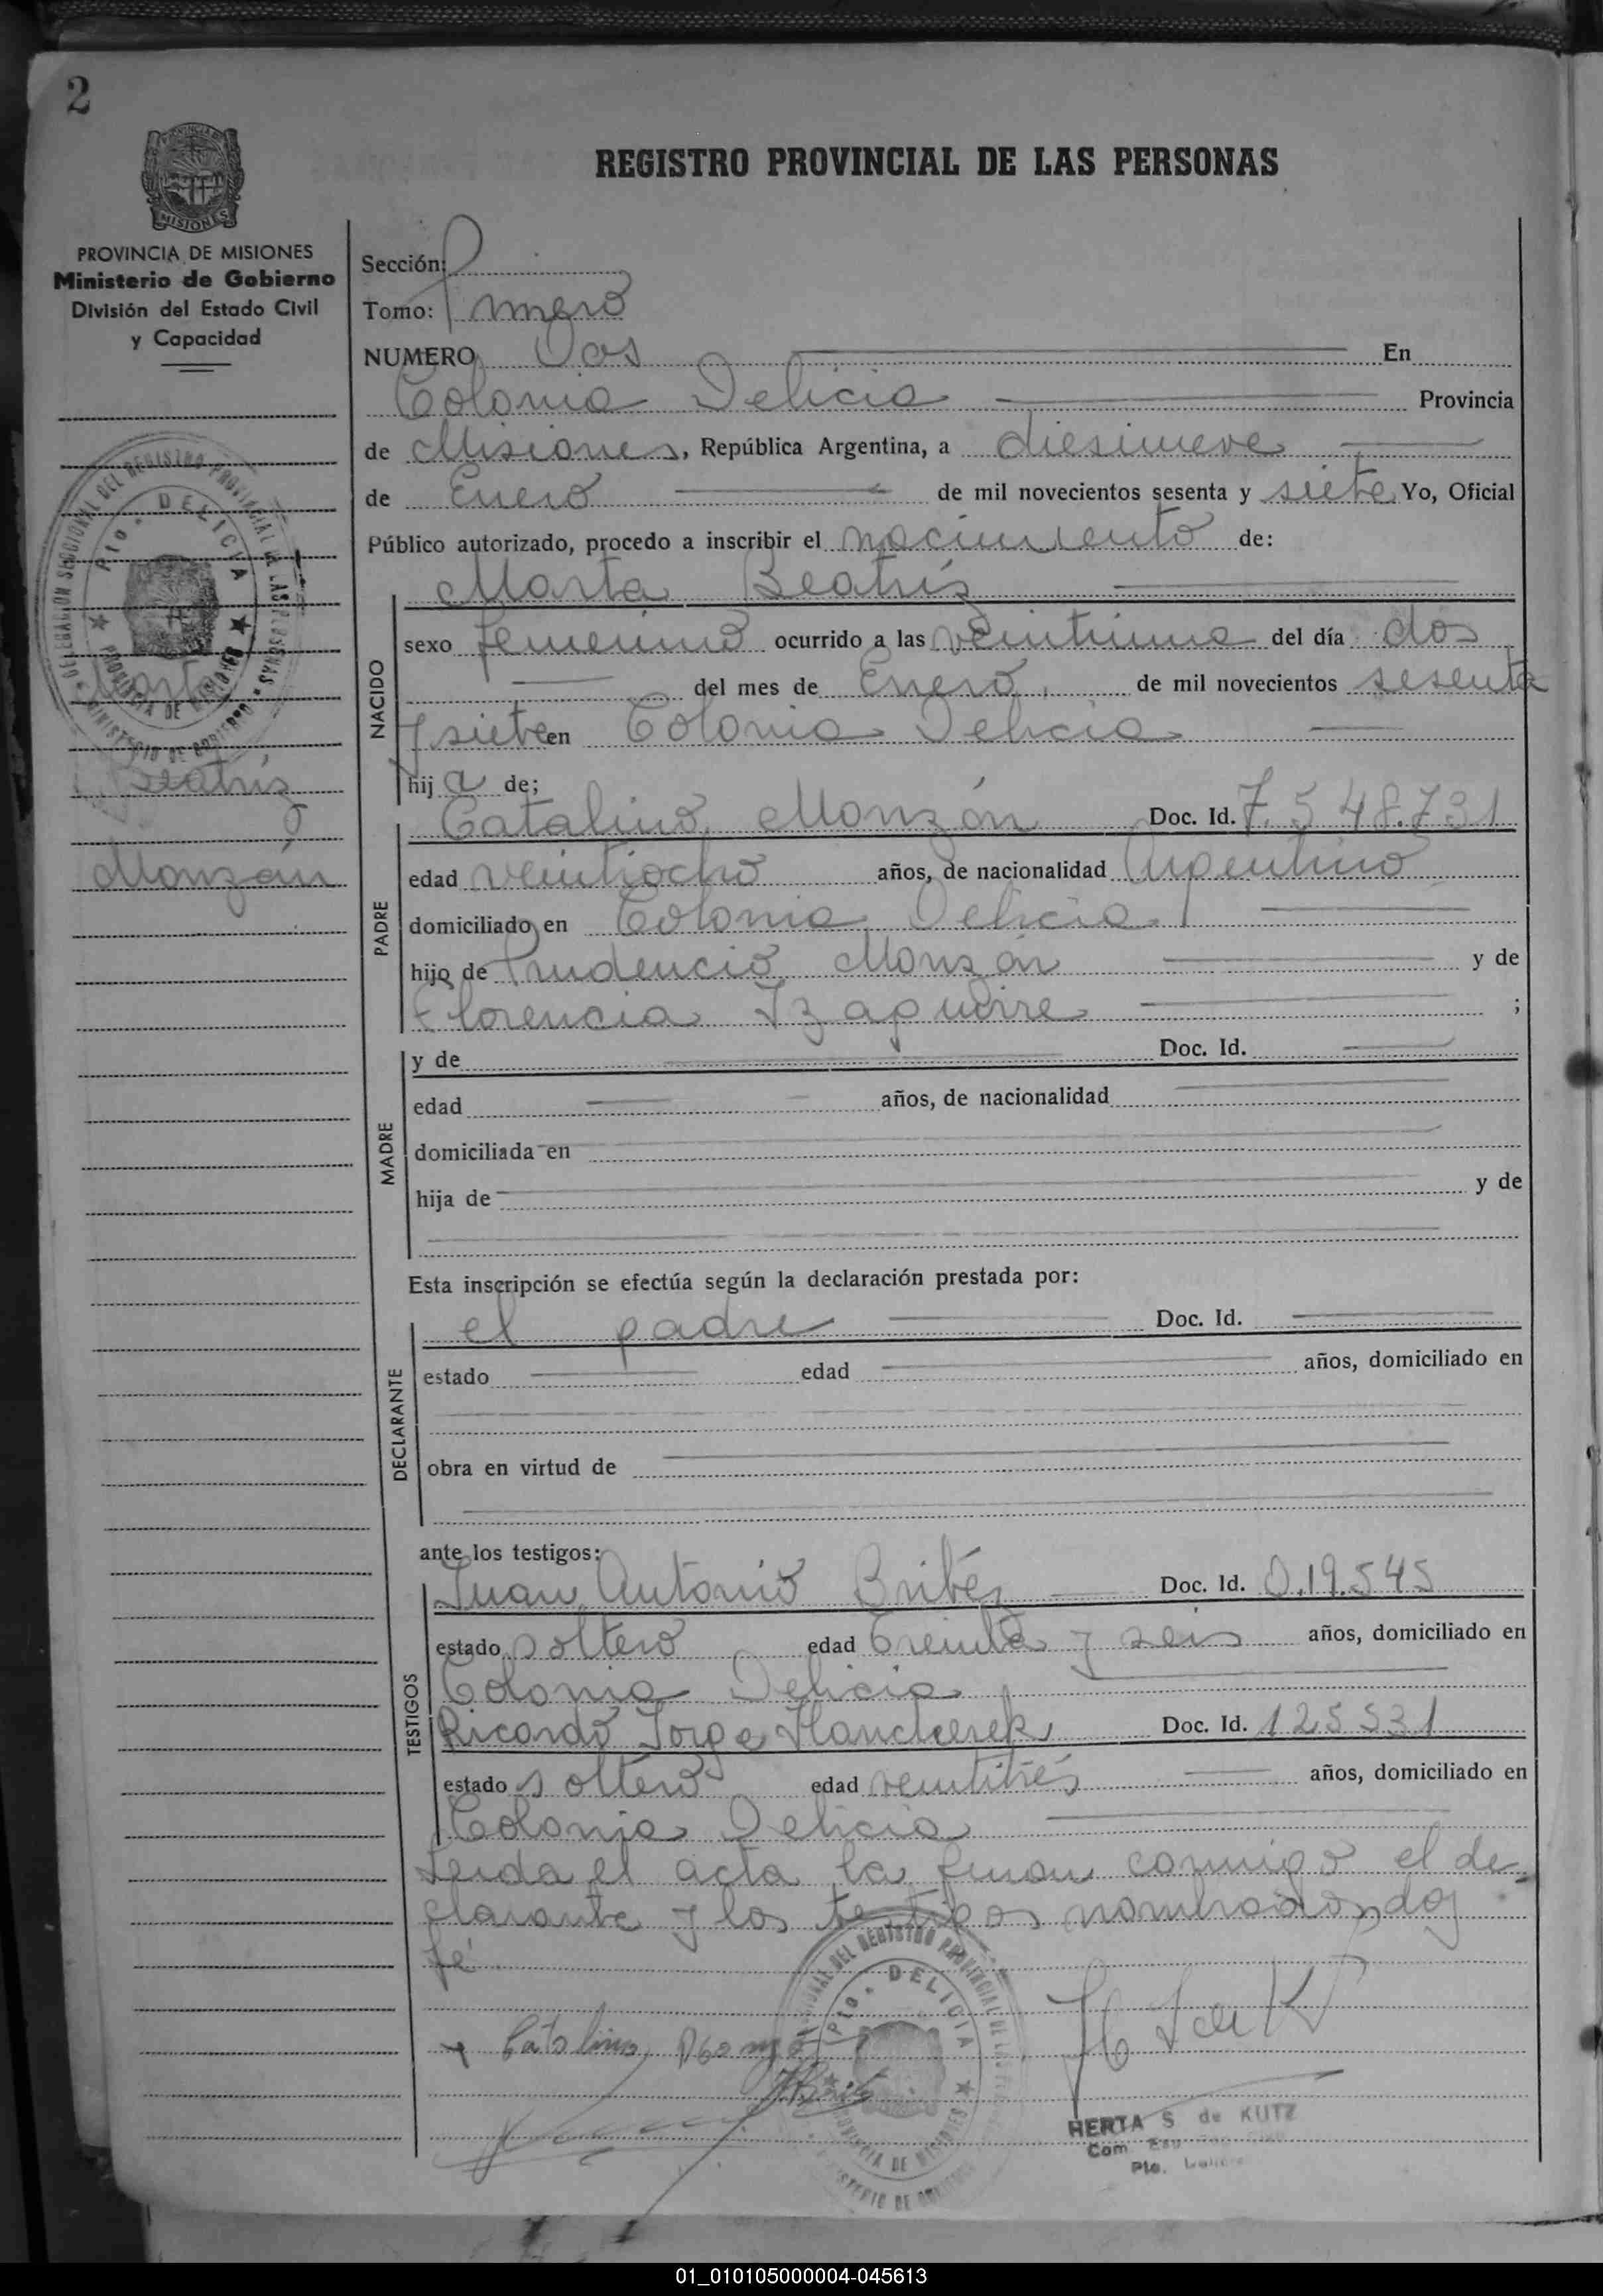 2
REGISTRO PROVINCIAL DE LAS PERSONAS
PROVINCIA DE MISIONES
MISIONES
PROVINCIA DE MISIONES
Ministerio de Gobierno
División del Estado Civil
y Capacidad
DELEGACION SECCIONAL DEL REGISTRO PROVINCIAL DE LAS PERSONAS
Pto. DELICIA
PROVINCIA DE MISIONES
MINISTERIO DE GOBIERNO
Marta
Beatríz
Monzón
Sección:
Tomo: Primero
NUMERO Dos En
Colonia Delicia Provincia
de Misiones, República Argentina, a diesinueve
de Enero de mil novecientos sesenta y siete Yo, Oficial
Público autorizado, procedo a inscribir el nacimiento de:
Marta Beatríz
NACIDO
sexo femenino ocurrido a las veintiuna del día dos
del mes de Enero, de mil novecientos sesenta
y siete en Colonia Delicia
hij a de;
PADRE
Catalino Monzón Doc. Id. 7.548.731
edad veintiocho años, de nacionalidad Argentino
domiciliado en Colonia Delicia
hijo de Prudencio Monzón y de
Florencia Izaguirre ;
MADRE
y de Doc. Id.
edad años, de nacionalidad
domiciliada en
hija de y de
Esta inscripción se efectúa según la declaración prestada por:
DECLARANTE
el padre Doc. Id.
estado edad años, domiciliado en
obra en virtud de
ante los testigos:
TESTIGOS
Juan Antonio Britéz Doc. Id. 0.19.545
estado soltero edad treinta y seis años, domiciliado en
Colonia Delicia
Ricardo Jorge Doc. Id. 125531
estado soltero edad veintitrés años, domiciliado en
Colonia Delicia
Leida el acta la firman conmigo el de-
clarante y los testigos nombrados, doy
fé.
DEL REGISTRO PROVINCIAL DE LAS
Pto. DELICIA
PROVINCIA DE MISIONES
Catalino Monzón
HERTA S de KUTZ
Pto. Delicia
01_010105000004-045613